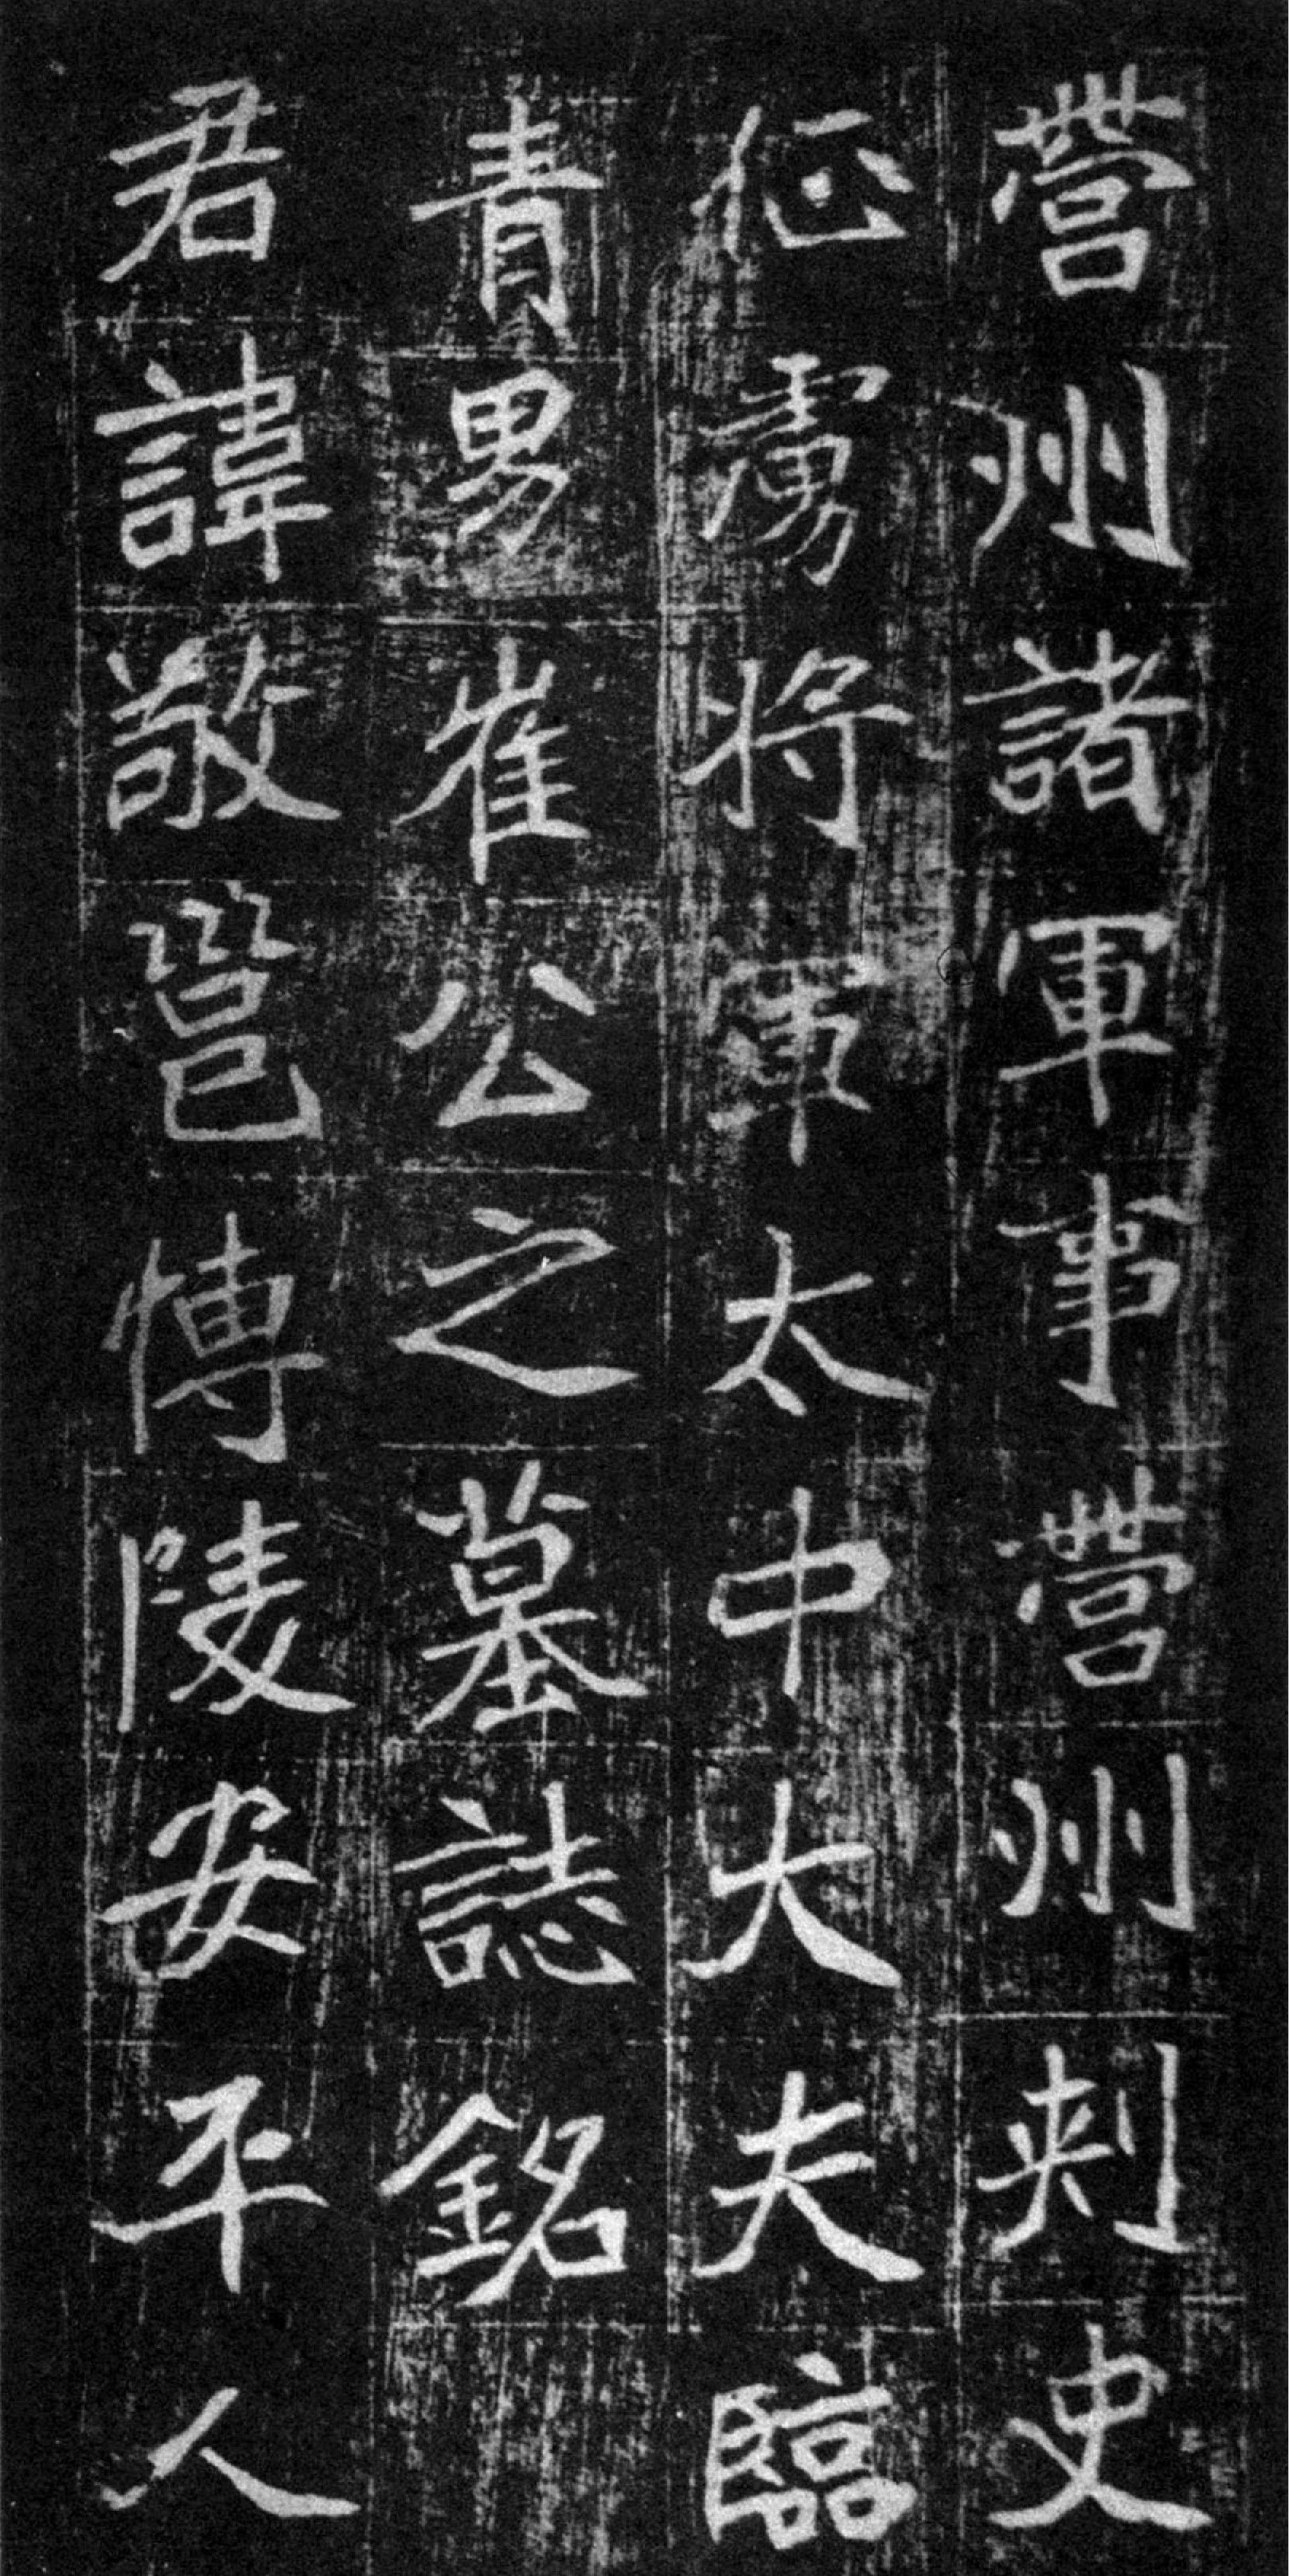 營州諸軍事營州刺史
征虜將軍太中大夫臨
青男崔公之墓誌銘
君諱敬邕博陵安平人